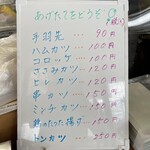 あげたてをどうぞ
(税込)
手羽先 90円
ハムカツ 100円
コロッケ 100円
ささみカツ 120円
ヒレカツ 120円
串カツ 150円
ミンチカツ 150円
鶏のたつた揚げ 250円
トンカツ 250円